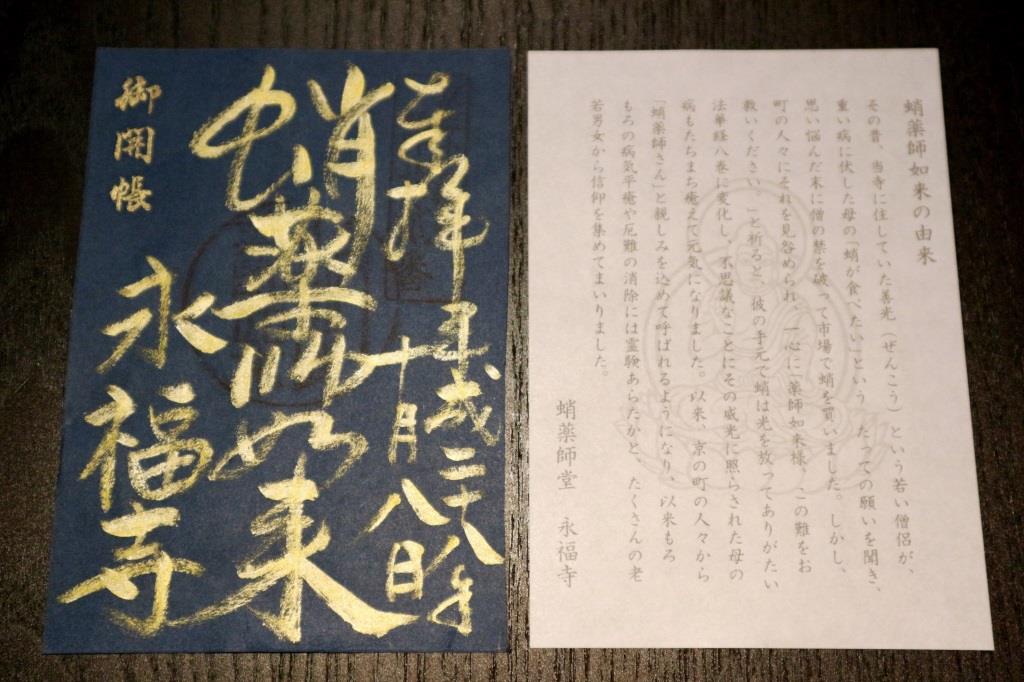 奉拝 平成二十八年
十月八日
蛸薬師如来
御開帳
永福寺
蛸薬師如来の由来
その昔、当寺に住していた善光（ぜんこう）という若い僧侶が、
重い病に伏した母の「蛸が食べたい」という　たっての願いを聞き、
思い悩んだ末に僧の禁を破って市場で蛸を買いました。しかし、
町の人々にそれを見咎められ、一心に「薬師如来様、この難をお
救いください。」と祈ると、彼の手元で蛸は光を放ってありがたい
法華経八巻に変化し、不思議なことにその威光に照らされた母の
病もたちまち癒えて元気になりました。以来、京の町の人々から
「蛸薬師さん」と親しみを込めて呼ばれるようになり、以来もろ
もろの病気平癒や厄難の消除には霊験あらたかと、たくさんの老
若男女から信仰を集めてまいりました。
蛸薬師堂　永福寺